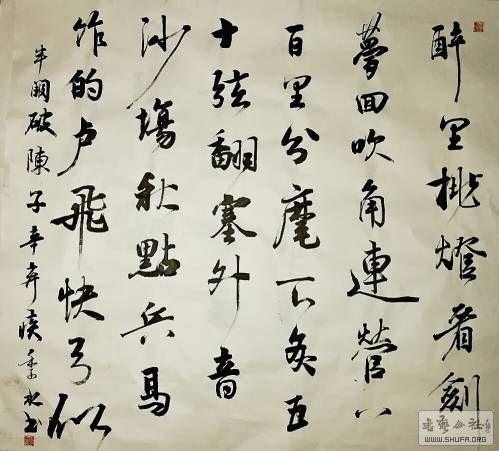 醉里挑燈看劍
夢回吹角連營八
百里分麾下炙五
十弦翻塞外音
沙塲秋點兵馬
作的卢飛快弓似
半闋破陳子辛弃疾 书
书艺公社
WWW.SHUFA.ORG